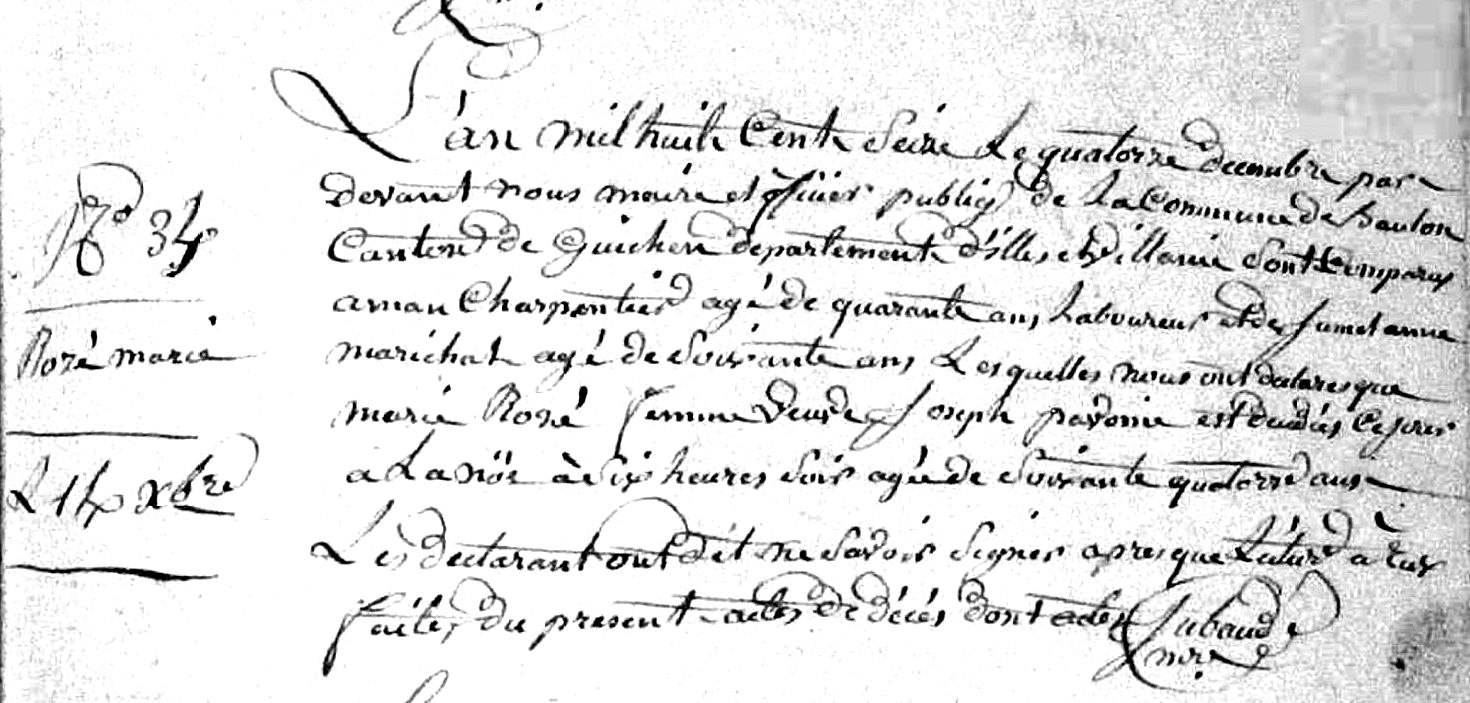 N° 34
Rozé marie
L 14 xbre
L'an mil huit Cent Seize Le quatorze decembre par
devant nous maire et officier public de La Commune de Baulon
Canton de Guichen departement d'illes et villaine Sont Comparus
aman Charpentier agé de quarante ans Laboureur et de Jumel anne
maréchal agé de Soixante ans Lesquelles nous ont declares que
marie Rozé femme veuve Joseph pavoine est décédés Ce jour
a La nöe à Six heures Soir agée de Soixante quatorze ans
Les declarant ont dit ne Savoir Signer apres que Lecture a Eux
faites du present actes de décés dont actes Jubaud
mre